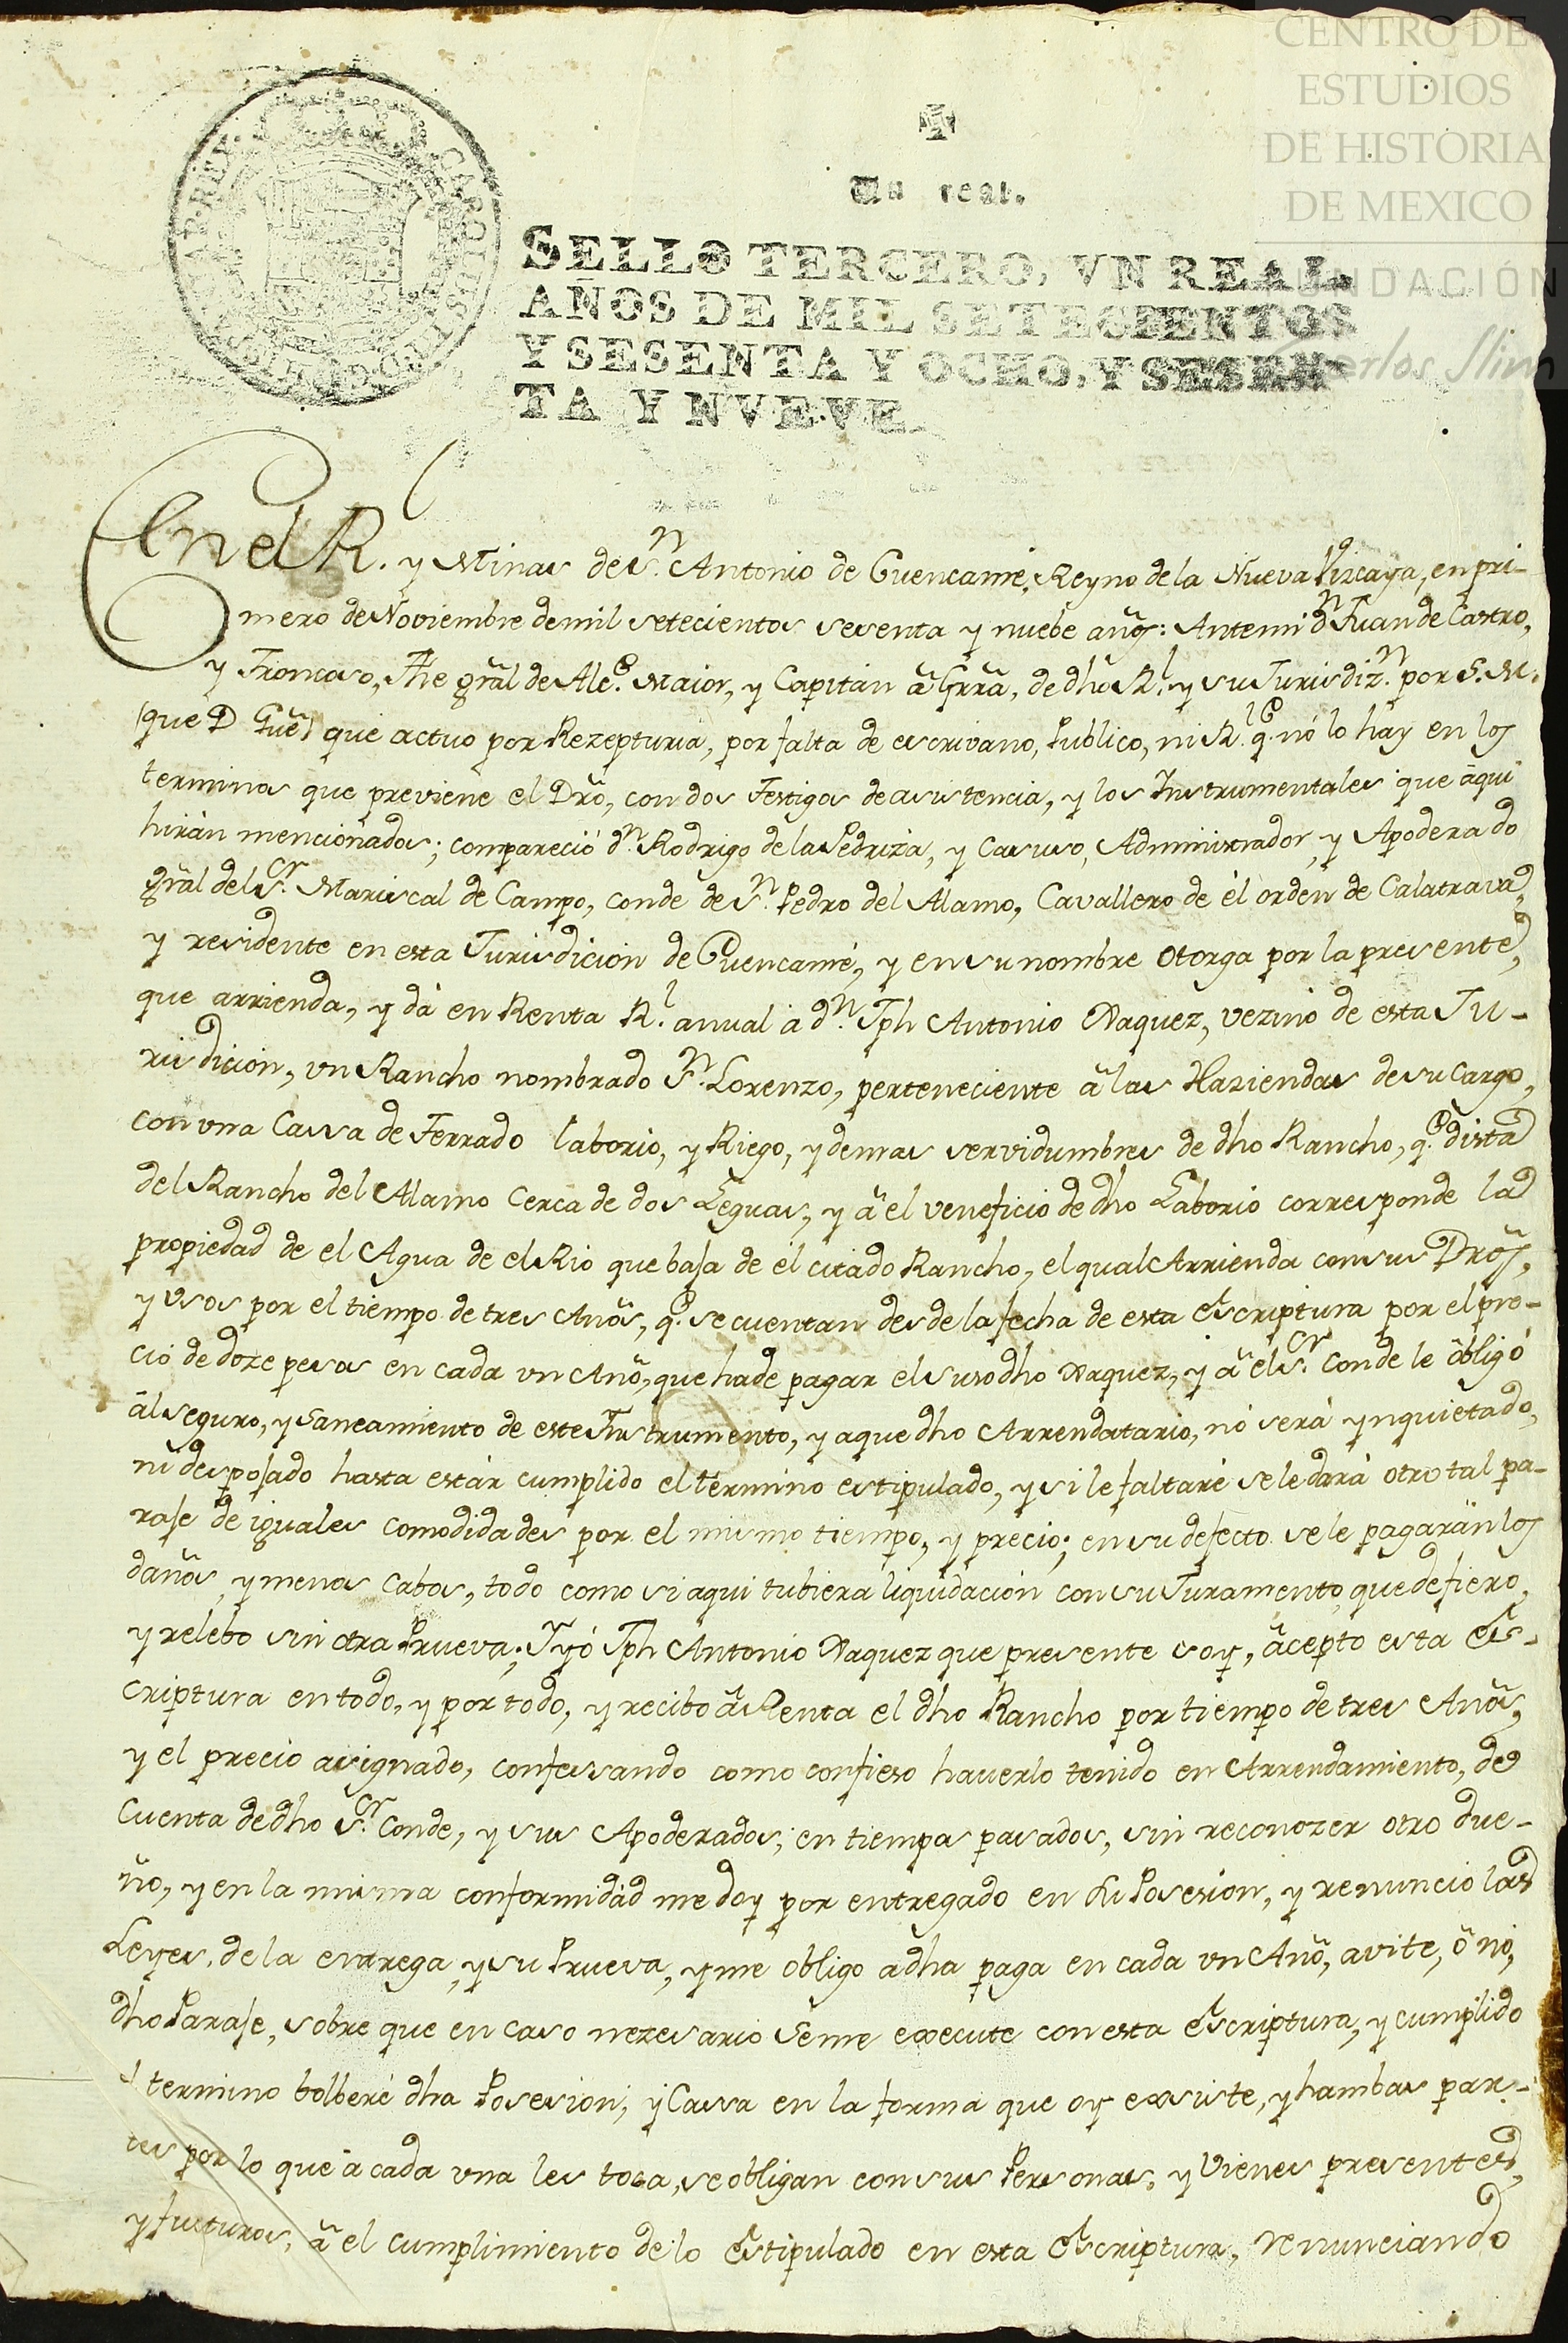 CENTRO DE
ESTUDIOS
DE HISTORIA
DE MEXICO
FUNDACIÓN
Carlos Slim
Un real.
SELLO TERCERO, VN REAL,
AÑOS DE MIL SETECIENTOS
Y SESENTA Y OCHO, Y SESEN
TA Y NVEVE.
En el R.l y Minas de S.n Antonio de Cuencamé, Reyno de la Nueva Vizcaya, en pri-
mero de Noviembre de mil setecientos sesenta y nuebe años: Antemi d.n Juan de Castro,
y Troncoso, The grãl de Alc.e Maior, y Capitan â Grrã, de dho R.l y su Jurisdiz.n por S. M.
(que D Gũe) que actuo por Rezepturia, por falta de escrivano, Publico, ni R.l q.e nó lo hay en los
terminos que previene el Drõ, con dos Testigos de asistencia, y los Instrumentales que âqui
hirán mencionados; compareció d.n Rodrigo de la Pedriza, y Casuso, Administrador, y Apoderado
grãl del S.or Mariscal de Campo, Conde de S.n Pedro del Alamo, Cavallero de él orden de Calatrava,
y residente en esta Jurisdicion de Cuencamé, y en su nombre otorga por la presente,
que arrienda, y dá en Renta R.l anual á d.n Jph Antonio Vaquez, vezino de esta Ju-
risdicion, un Rancho nombrado S.n Lorenzo, perteneciente â las Haziendas de su cargo,
con una Cassa de Terrado laborio, y Riego, y demas servidumbres de dho Rancho, q.e dista
del Rancho del Alamo cerca de dos Leguas, y â el veneficio de dho Laborio corresponde la
propiedad de el Agua de el Rio que baja de él citado Rancho, el qual Arrienda con sus Drõs,
y usos por el tiempo de tres Años, q.e se cuentan desde la fecha de esta Escriptura por el pre-
cio de doze pesos en cada un Año, que ha de pagar el susodho Vaquez, y â el S.or Conde le óbligó
âl seguro, y Saneamiento de este Instrumento, y a que dho Arrendatario, nó será ynquietado,
ni desposado hasta estár cumplido el termino estipulado, y si le faltaré se le dará otro tal pa-
raje de iguales comodidades por el mismo tiempo, y precio; en su defecto se le pagarán los
daños, y menos cabos, todo como si aqui tubiera liquidación con su Juramento, que defiero,
y relebo sin otra Prueva; Y yó Jph Antonio Vaquez que presente soy, âcepto esta Es-
criptura en todo, y por todo, y recibo â Renta el dho Rancho por tiempo de tres Años,
y el precio asignado, confessando como confieso haverlo tenido en Arrendamiento, de
cuenta de dho S.or Conde, y sus Apoderados; en tiempos pasados, sin reconozer otro due-
ño, y en la misma conformidád me doy por entregado en su Posesion, y renuncio las
Leyes, de la entrega, y su Prueva, y me obligo a dha paga en cada un Año, avite, ô nó,
dho Paraje, sobre que en caso nezesario se me execute con esta Escriptura, y cumplido
el termino bolberé dha Posesion; y Cassa en la forma que oy exsiste, y hambas par-
tes por lo que á cada una les toca, se obligan con sus Personas, y Vienes presentes,
y futuros, â el cumplimiento de lo Estipulado en esta Escriptura, renunciando